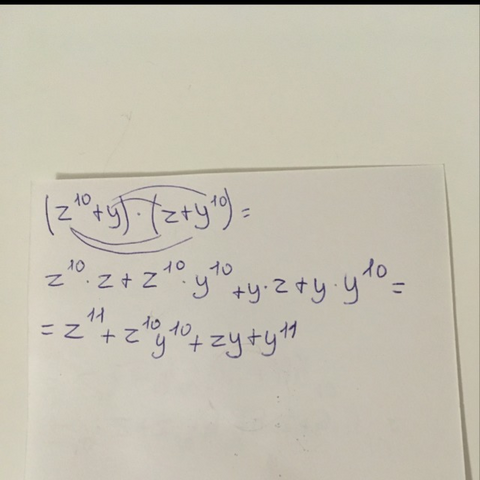 (z¹⁰+y)·(z+y¹⁰)=
z¹⁰·z+z¹⁰·y¹⁰+y·z+y·y¹⁰=
=z¹¹+z¹⁰y¹⁰+zy+y¹¹